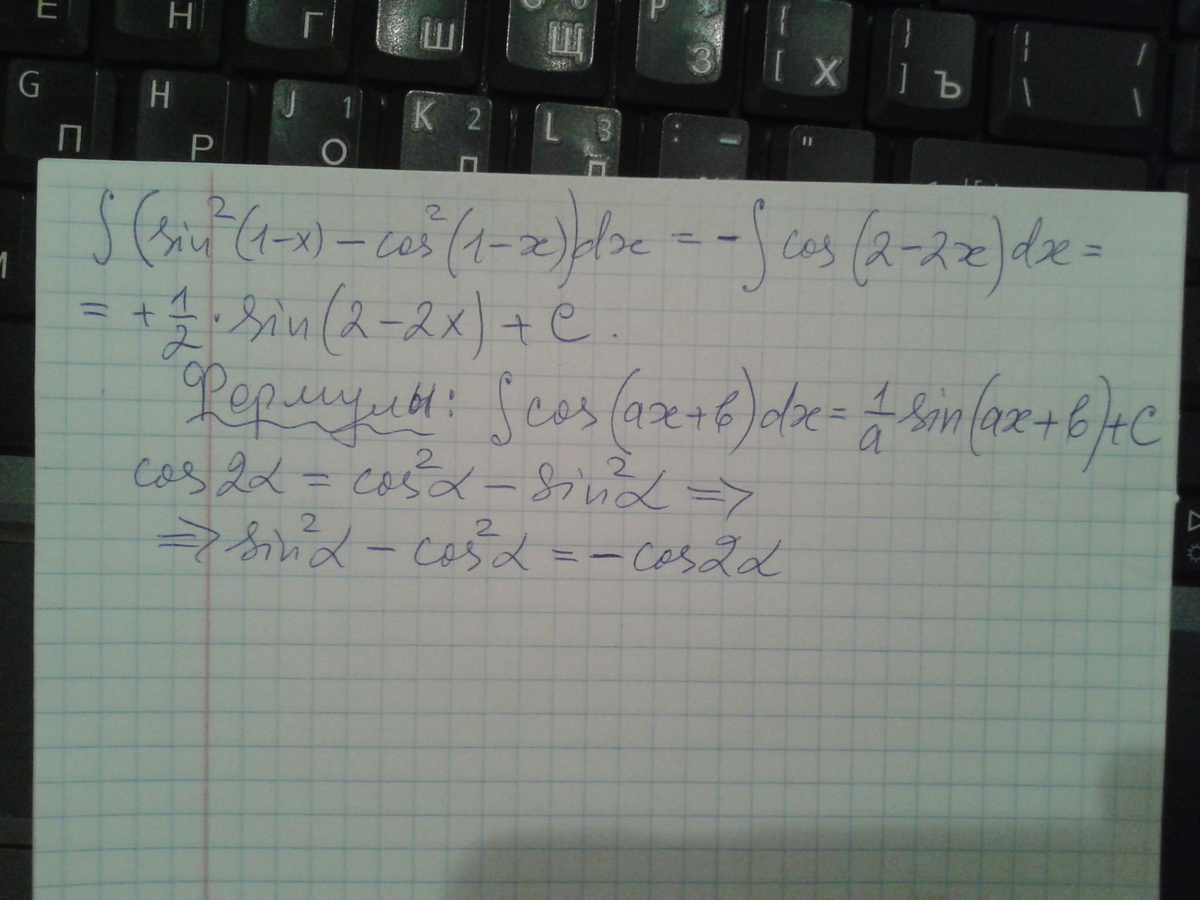 Е Н Г Ш Щ P * З { [ Х } ] Ъ | / \ \
G П H Р J 1 О K 2 Л L 3 : "
∫(sin²(1-x) - cos²(1-x))dx = -∫cos(2-2x)dx =
= +1/2 · sin(2-2x) + C.
Формулы: ∫cos(ax+b)dx = 1/a sin(ax+b)+C
cos2α = cos²α - sin²α =>
=> sin²α - cos²α = -cos2α